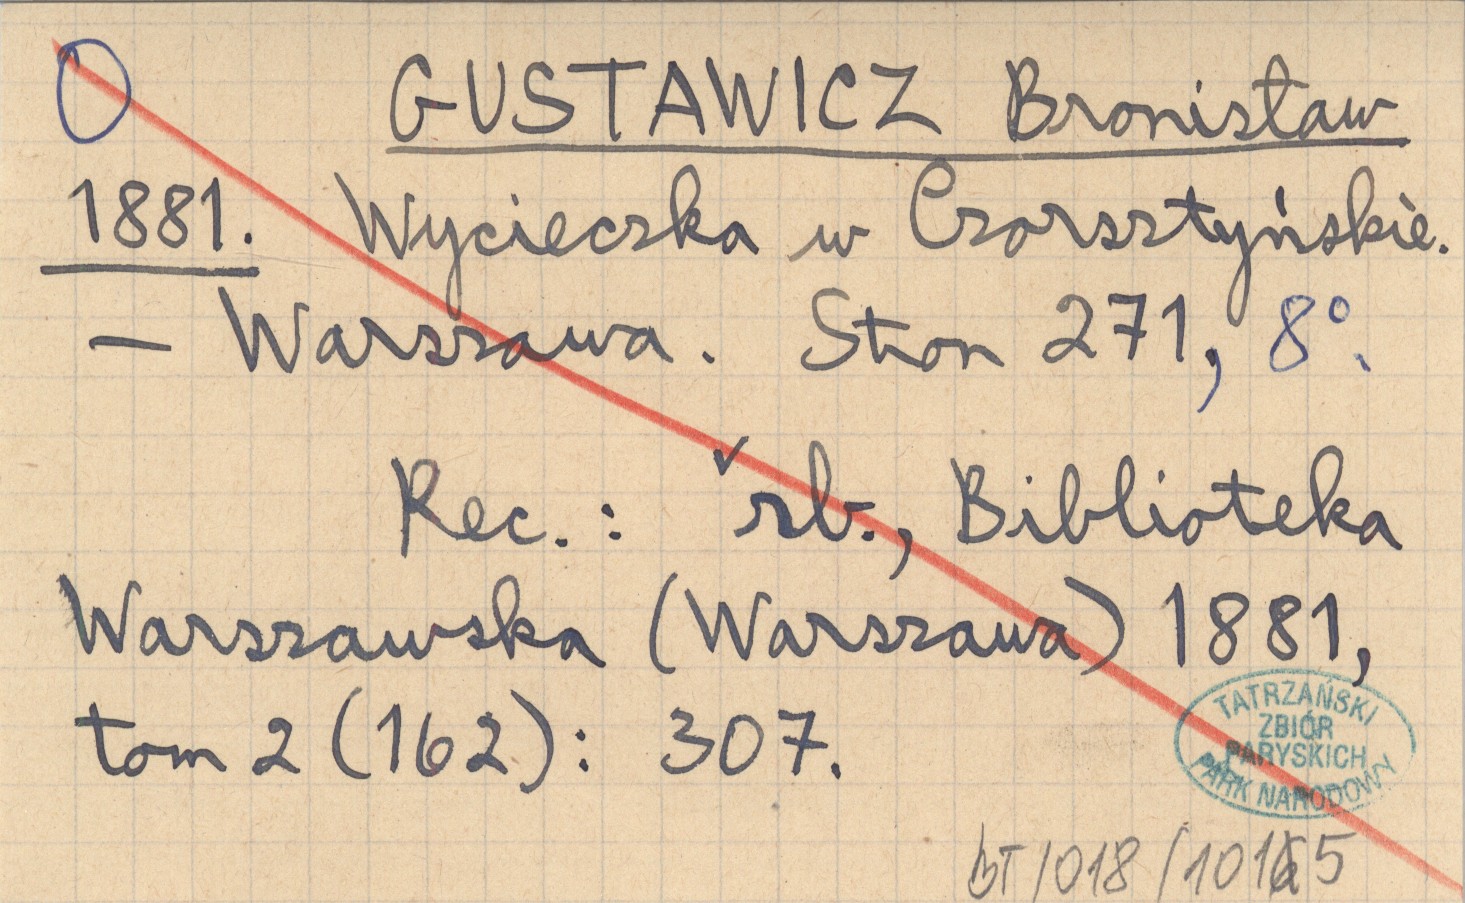 O GUSTAWICZ Bronisław
1881. Wycieczka w Czorsztyńskie.
— Warszawa. Stron 271, 8°.
Rec.: zb., Biblioteka
Warszawska (Warszawa) 1881,
tom 2 (162): 307.
TATRZAŃSKI
ZBIÓR
PARYSKICH
PARK NARODOWY
BT/018/